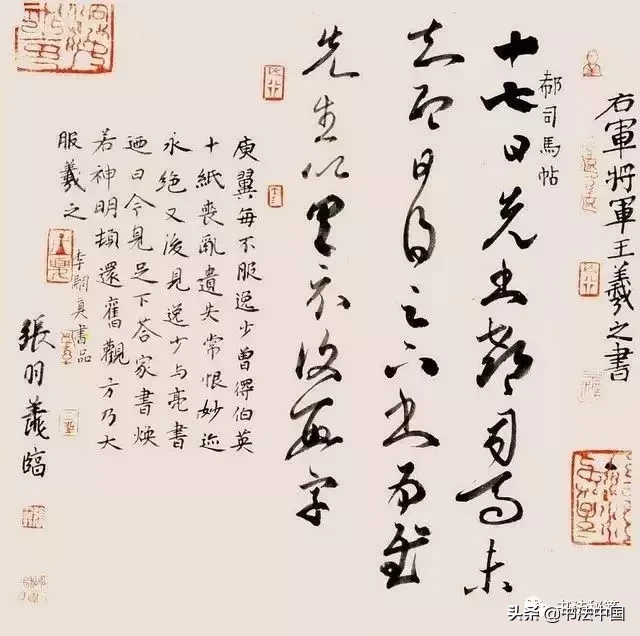 右軍將軍王羲之書
郗司馬帖
十七日先書郗司馬未
去即日得足下書為慰
先書以具示復數字
庾翼每不服逸少曾得伯英
十紙喪亂遺失常恨妙迹
永絕又後見逸少与亮書
廼曰今見足下荅家書煥
若神明頓還舊觀方乃大
服羲之
李嗣真書品
張羽臨
头条 @书法中国